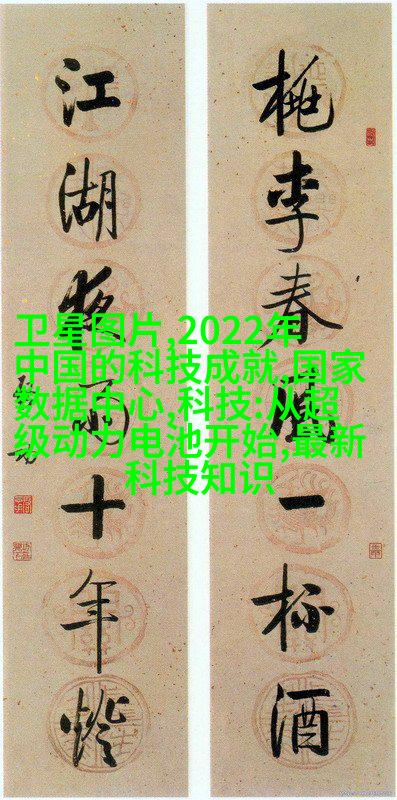 桃李春風一杯酒
江湖夜雨十年燈
卫星图片,2022年
中国的科技成就,国家
数据中心,科技:从超
级动力电池开始,最新
科技知识